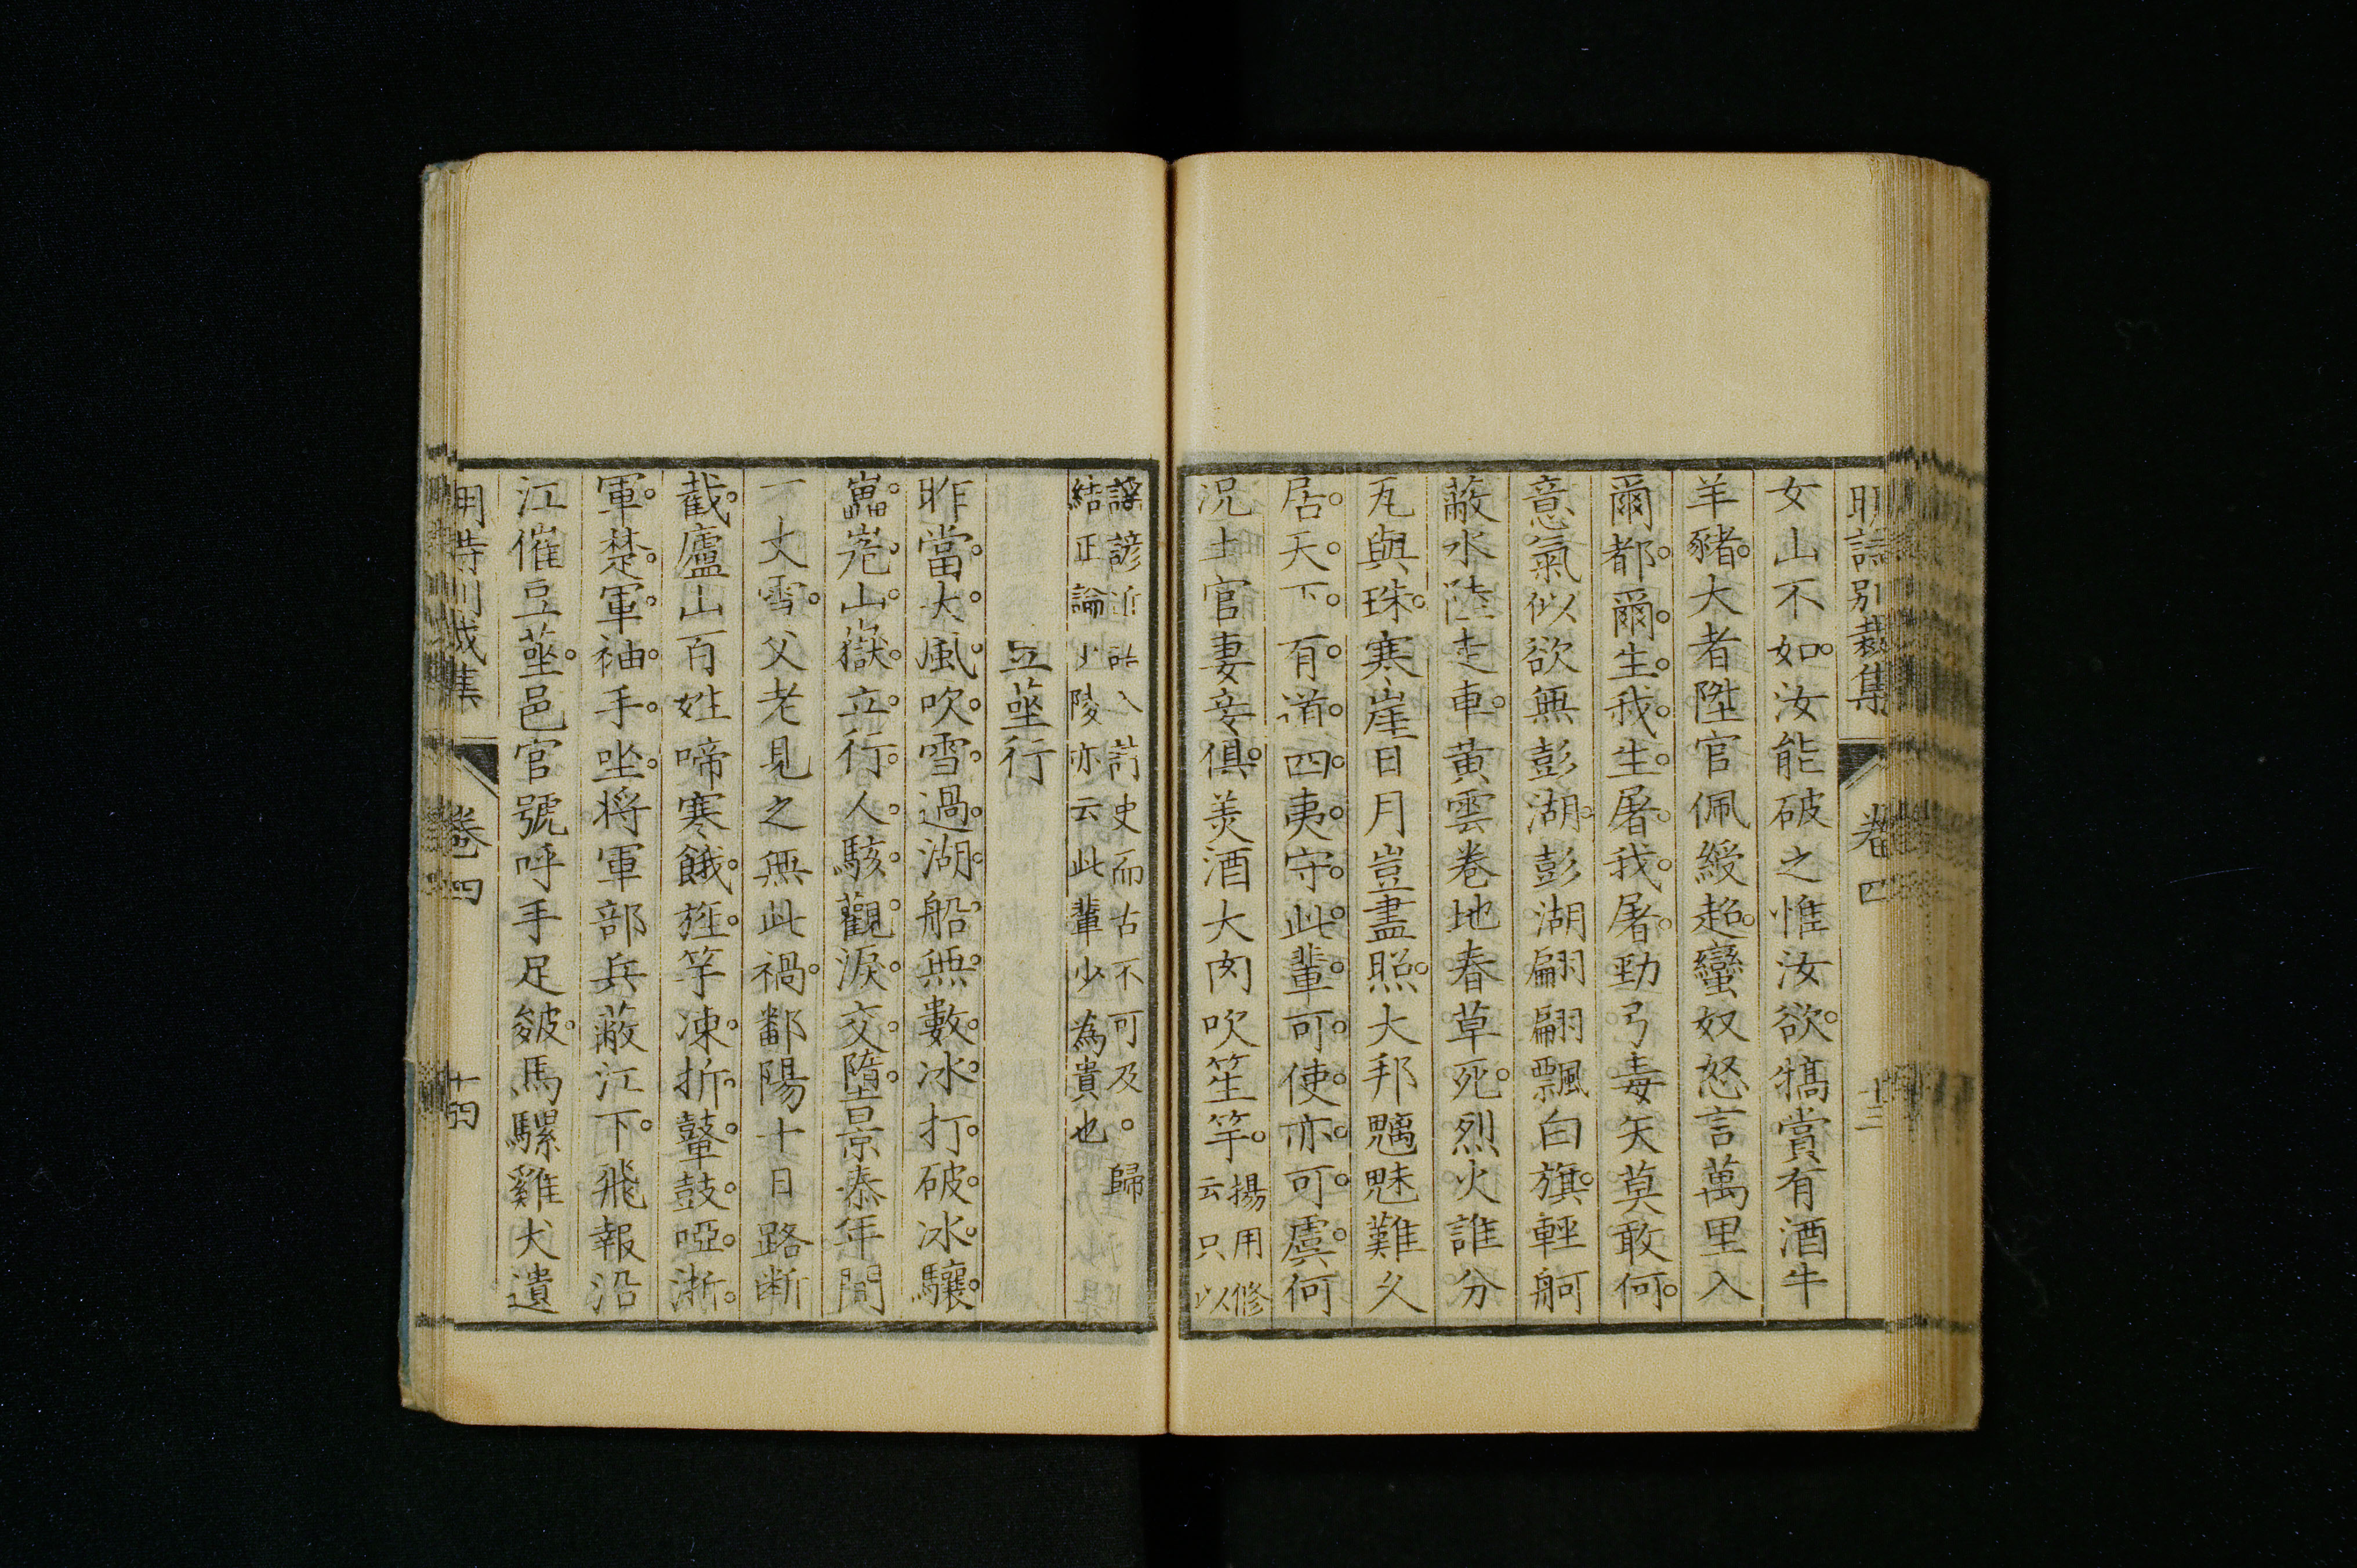 明詩別裁集 卷四 十三
女山不如汝能破之惟汝欲犒賞有酒牛
羊豬大者陞官佩綬超蠻奴怒言萬里入
爾都爾生我生屠我屠勁弓毒矢莫敢何
意氣似欲無彭湖彭湖翩翩飄白旗輕舸
蔽水陸走車黃雲卷地春草死烈火誰分
瓦與珠寒崖日月豈盡照大邦魑魅難久
居天下有道四夷守此輩可使亦可虞何
況土官妻妾俱美酒大肉吹笙竽
揚用修
云只以
謠諺近語入詩史而古不可及。歸
結正論少陵亦云此輩少為貴也
豆莝行
昨當大風吹雪過湖船無數冰打破冰驤
嵓嵬山嶽立行人駭觀淚交墮景泰年間
一丈雪父老見之無此禍鄱陽十日路斷
截廬山百姓啼寒餓旌竿凍折鼙鼓啞浙
軍楚軍袖手坐將軍部兵蔽江下飛報沿
江催豆莝邑官號呼手足皴馬騾雞犬遺
明詩別裁集 卷四 十四